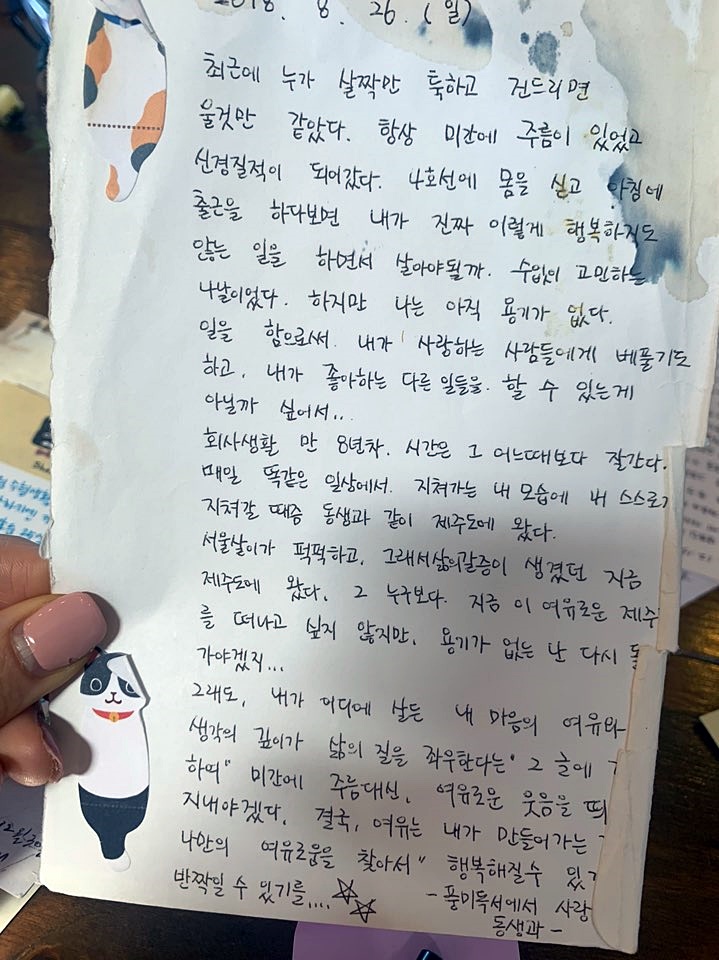 2018. 8. 26. (일)
최근에 누가 살짝만 툭하고 건드리면
울것만 같았다. 항상 미간에 주름이 있었고
신경질적이 되어갔다. 4호선에 몸을 싣고 아침에
출근을 하다보면 내가 진짜 이렇게 행복하지도
않는 일을 하면서 살아야될까. 수없이 고민하는
나날이었다. 하지만 나는 아직 용기가 없다.
일을 함으로써. 내가 사랑하는 사람들에게 베풀기도
하고, 내가 좋아하는 다른 일들을. 할 수 있는게
아닐까 싶어서...
회사생활 만 8년차. 시간은 그 어느때보다 잘간다.
매일 똑같은 일상에서. 지쳐가는 내 모습에 내 스스로가
지쳐갈 때쯤 동생과 같이 제주도에 왔다.
서울살이가 퍽퍽하고, 그래서삶의갈증이 생겼던 지금
제주도에 왔다. 그 누구보다. 지금 이 여유로운 제주
를 떠나고 싶지 않지만, 용기가 없는 난 다시 돌
가야겠지...
그래도, 내가 어디에 살든 내 마음의 여유와
생각의 깊이가 삶의 질을 좌우한다는" 그 글에
하여" 미간에 주름대신, 여유로운 웃음을 띄
지내야겠다. 결국, 여유는 내가 만들어가는
나만의 여유로움을 찾아서" 행복해질수 있
반짝일 수 있기를....
-풍미독서에서 사랑
동생과-